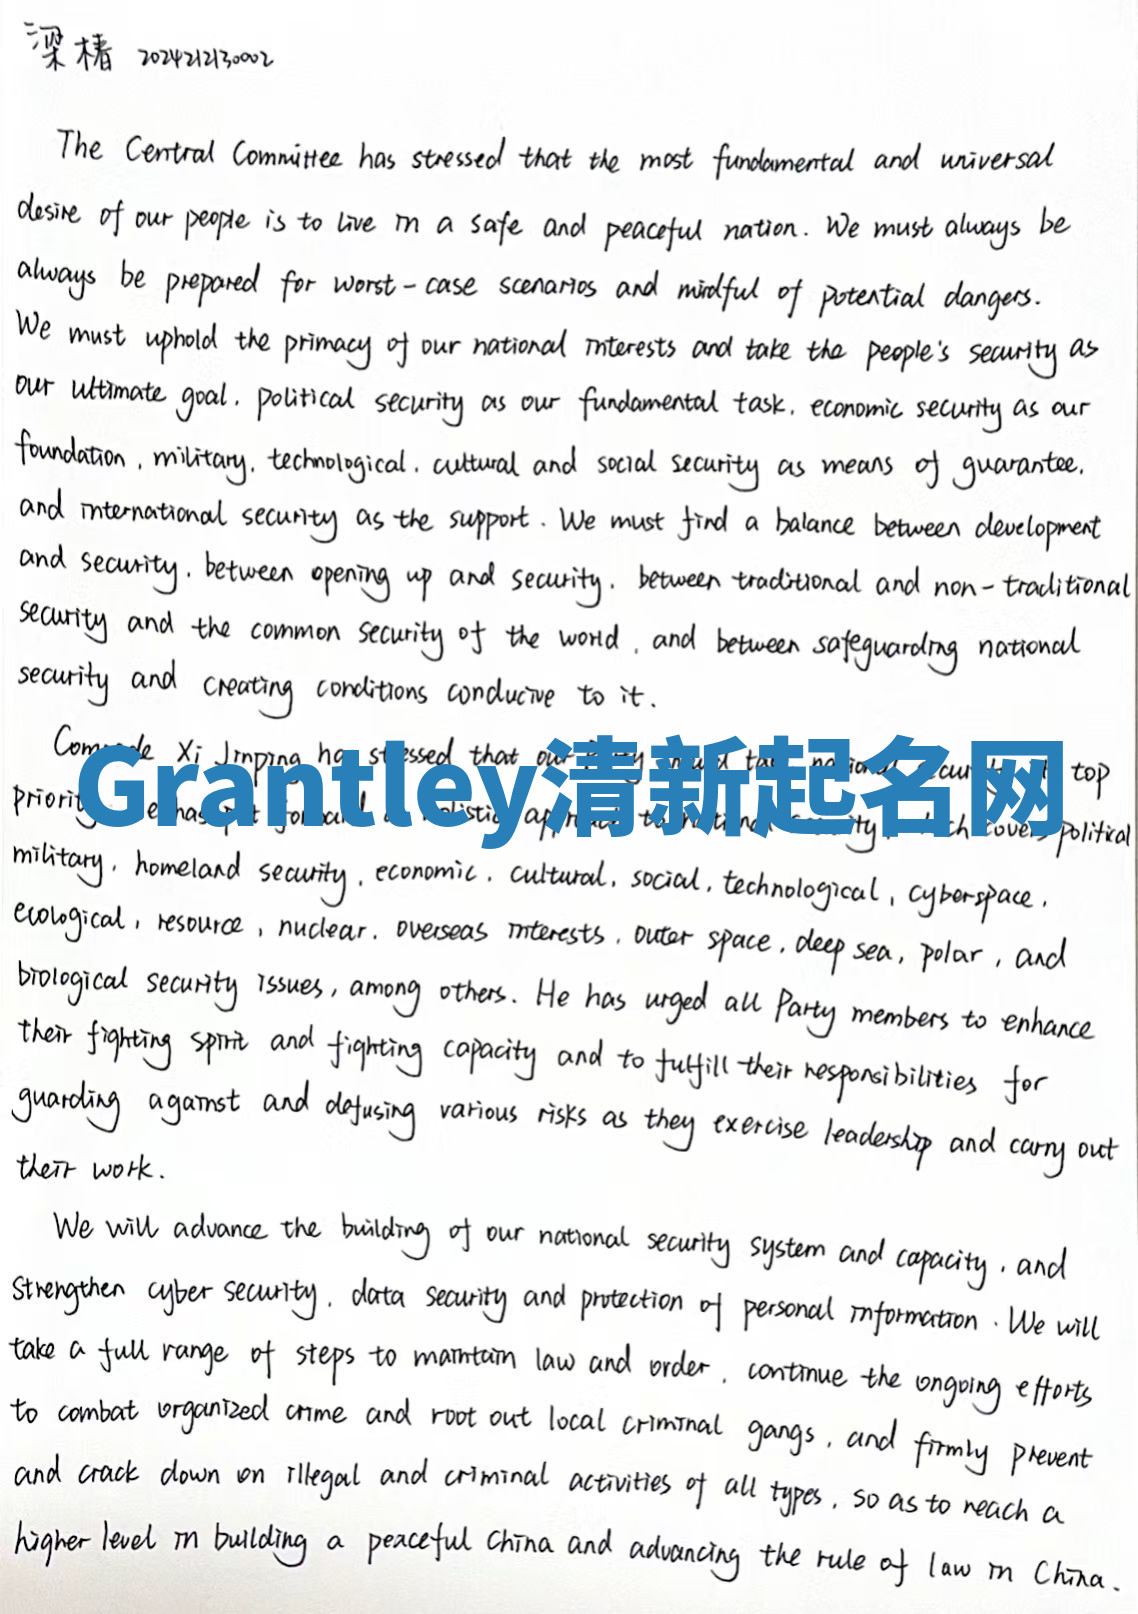 梁椿 2024212130002
The Central Committee has stressed that the most fundamental and universal
desire of our people is to live in a safe and peaceful nation. We must always be
always be prepared for worst-case scenarios and mindful of potential dangers.
We must uphold the primacy of our national interests and take the people's security as
our ultimate goal, political security as our fundamental task, economic security as our
foundation, military, technological, cultural and social security as means of guarantee,
and international security as the support. We must find a balance between development
and security, between opening up and security, between traditional and non-traditional
security and the common security of the world, and between safeguarding national
security and creating conditions conducive to it.
Comrade Xi Jinping has stressed that our top
Grantley清新起名网
priority political
military, homeland security, economic, cultural, social, technological, cyberspace,
ecological, resource, nuclear, overseas interests, outer space, deep sea, polar, and
biological security issues, among others. He has urged all Party members to enhance
their fighting spirit and fighting capacity and to fulfill their responsibilities for
guarding against and defusing various risks as they exercise leadership and carry out
their work.
We will advance the building of our national security system and capacity, and
strengthen cyber security, data security and protection of personal information. We will
take a full range of steps to maintain law and order, continue the ongoing efforts
to combat organized crime and root out local criminal gangs, and firmly prevent
and crack down on illegal and criminal activities of all types, so as to reach a
higher level in building a peaceful China and advancing the rule of law in China.